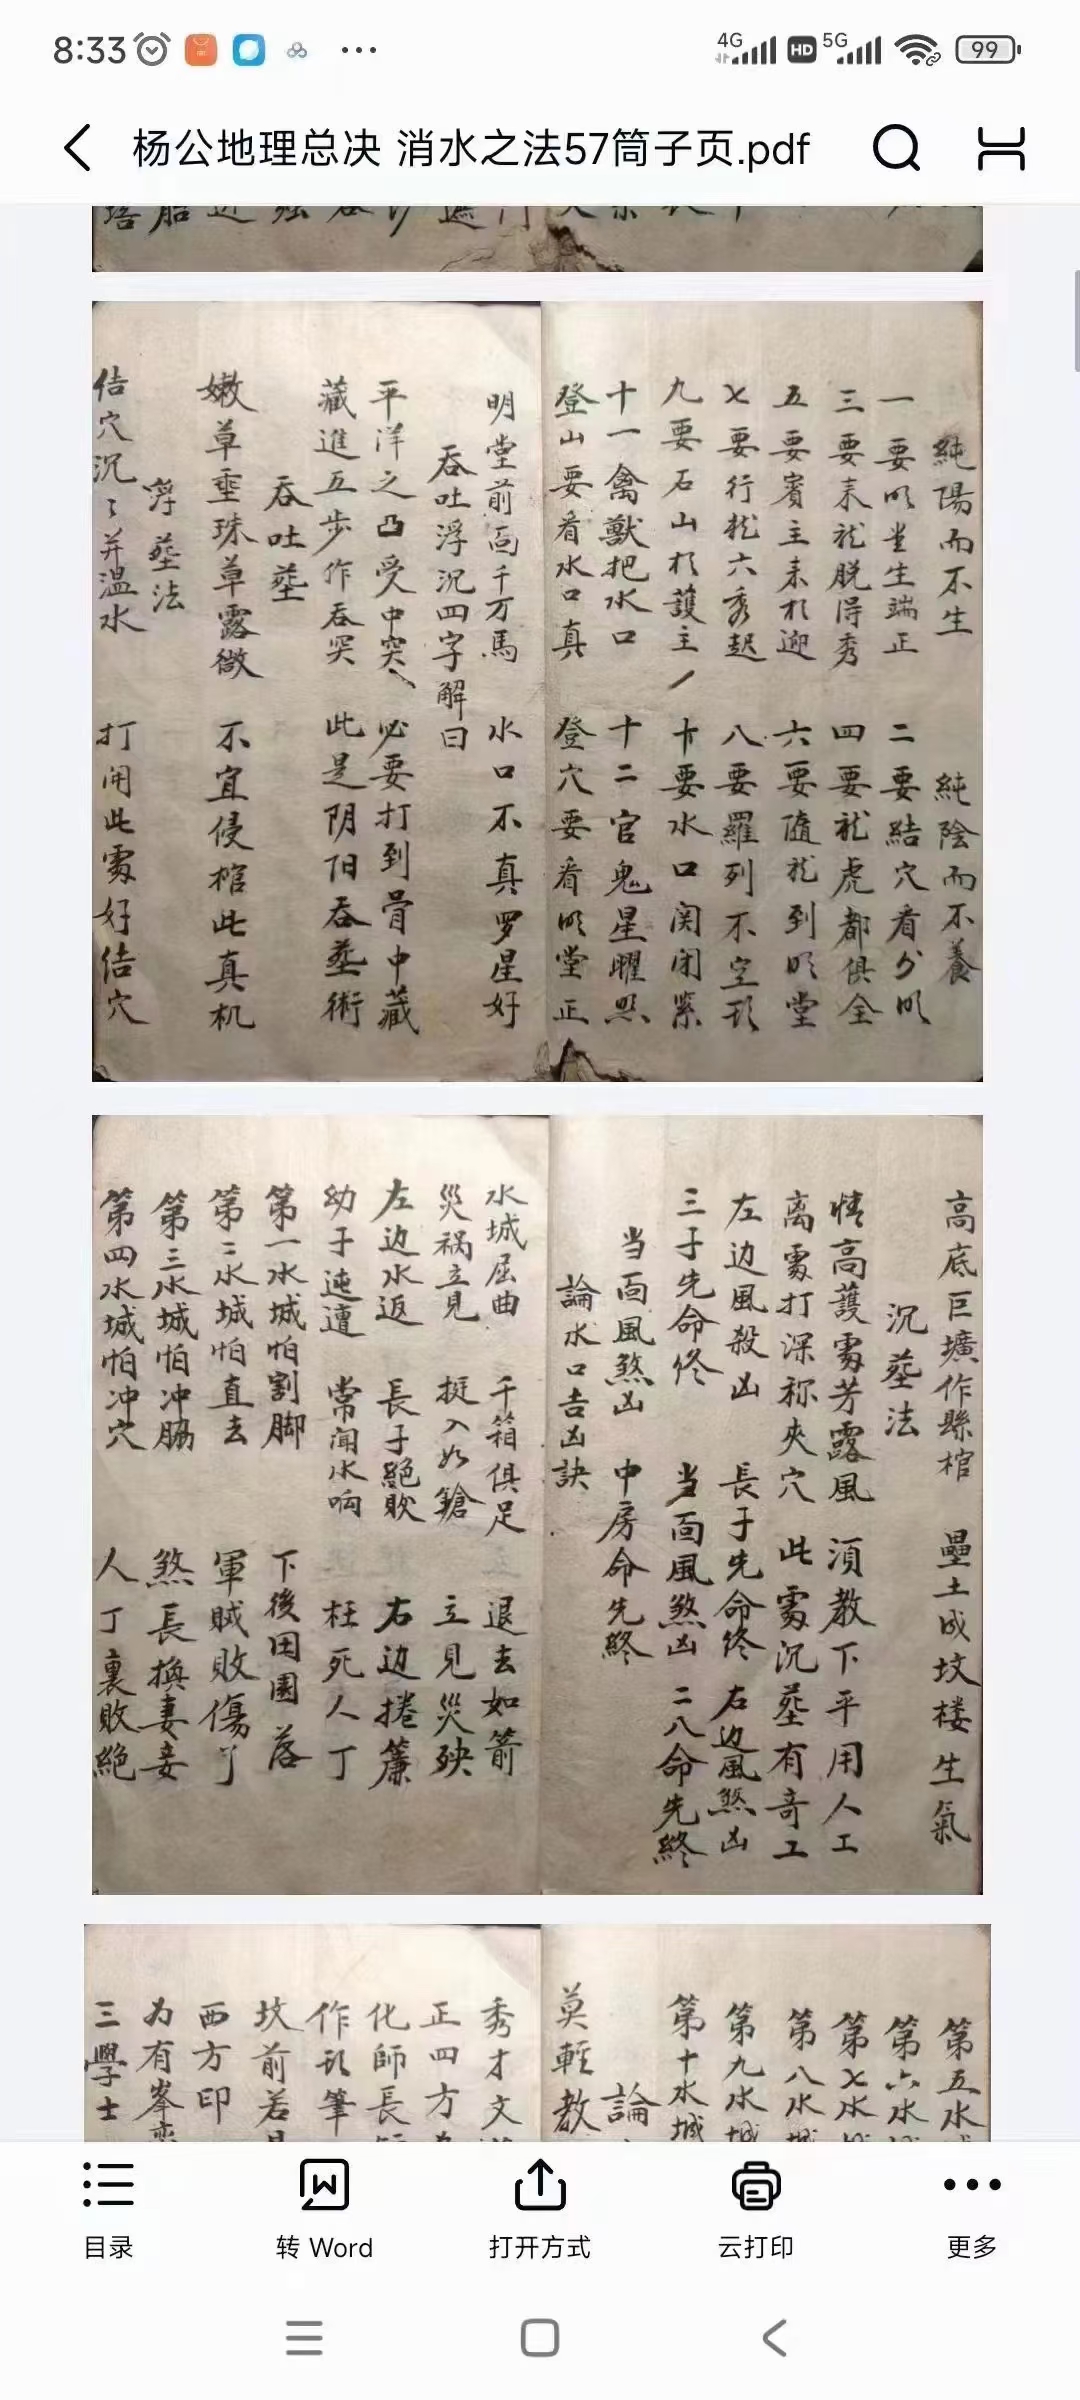 8:33
4G HD 5G 99
杨公地理总决 消水之法57筒子页.pdf
純陽而不生 純陰而不養
一要明堂生端正 二要結穴看分明
三要来龙脱得秀 四要龙虎都俱全
五要賓主来相迎 六要隨龙到明堂
七要行龙六秀起 八要羅列不空形
九要石山相護主 十要水口関闭密
十一禽獸把水口 十二官鬼星曜照
登山要看水口真 登穴要看明堂正
明堂前面千万馬 水口不真罗星好
吞吐浮沉四字解曰
平洋之凸受中突 必要打到骨中藏
藏進五步作吞突 此是阴阳吞塟術
吞吐塟
嫩草垂珠草露微 不宜侵棺此真机
浮塟法
佶穴沉沉并温水 打開此處好佶穴
高底巨壙作懸棺 壘土成坟楼生氣
沉塟法
情高護處芳露風 須教下平用人工
离處打深称夾穴 此處沉塟有奇工
左边風殺凶 長子先命终 右边風煞凶
三子先命终 当面風煞凶 二八命先終
当面風煞凶 中房命先終
論水口吉凶訣
水城屈曲 千箱俱足 退去如箭
災祸立見 挺入如鎗 立見災殃
左边水返 長子絕敗 右边捲簾
幼子迍邅 常闻水响 枉死人丁
第一水城怕割脚 下後田園落
第二水城怕直去 軍賊敗傷丁
第三水城怕冲脇 煞長換妻妾
第四水城怕冲穴 人丁裏敗絕
第五水
第六水
第七水
第八水城
第九水城
第十水城
論
莫輕教
秀才文
正四方
化師長
作形筆
坟前若
西方印
为有峯
三學士
目录 转 Word 打开方式 云打印 更多